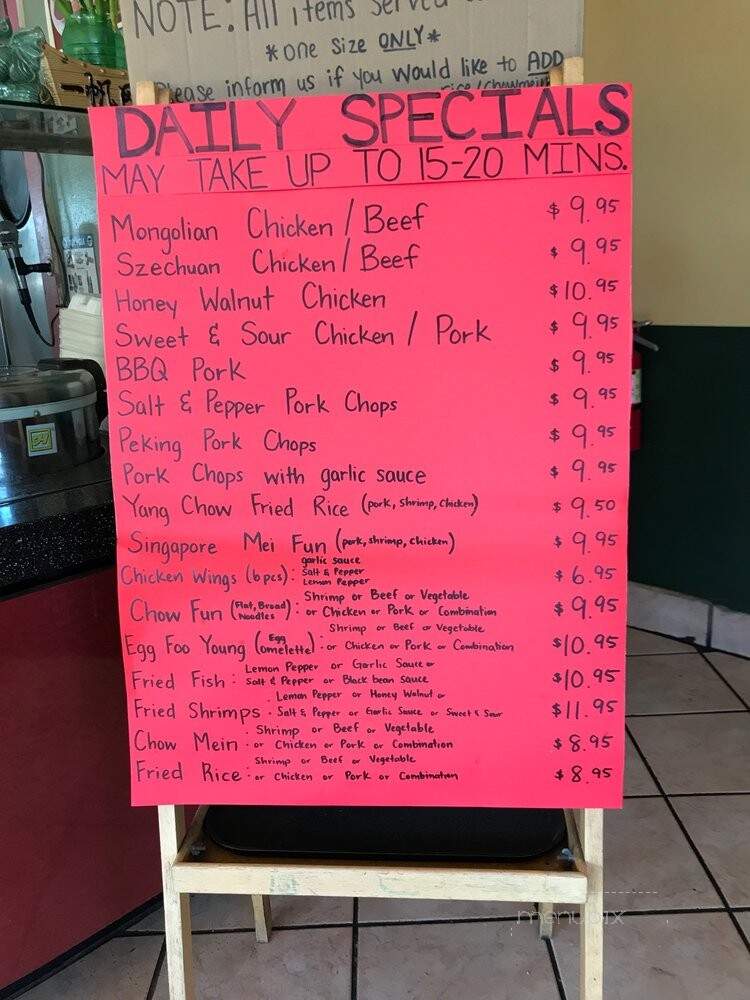 NOTE: All items served
*one size ONLY*
Please inform us if you would like to ADD
rice/chowmein
DAILY SPECIALS
MAY TAKE UP TO 15-20 MINS.
Mongolian Chicken / Beef $9.95
Szechuan Chicken / Beef $9.95
Honey Walnut Chicken $10.95
Sweet & Sour Chicken / Pork $9.95
BBQ Pork $9.95
Salt & Pepper Pork Chops $9.95
Peking Pork Chops $9.95
Pork Chops with garlic sauce $9.95
Yang Chow Fried Rice (pork, shrimp, chicken) $9.50
Singapore Mei Fun (pork, shrimp, chicken) $9.95
garlic sauce
Chicken Wings (6pcs): Salt & Pepper $6.95
Lemon Pepper
Shrimp or Beef or Vegetable
Chow Fun (Flat, Broad Noodles) : or Chicken or Pork or Combination $9.95
Shrimp or Beef or Vegetable
Egg Foo Young (Egg omelette) : or Chicken or Pork or Combination $10.95
Lemon Pepper or Garlic Sauce or
Fried Fish : Salt & Pepper or Black bean sauce $10.95
Lemon Pepper or Honey Walnut or
Fried Shrimps : Salt & Pepper or Garlic Sauce or Sweet & Sour $11.95
Shrimp or Beef or Vegetable
Chow Mein : or Chicken or Pork or Combination $8.95
Shrimp or Beef or Vegetable
Fried Rice : or Chicken or Pork or Combination $8.95
menupix